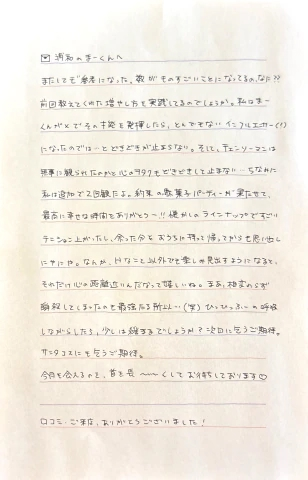 浦和のまーくんへ
またしてもご参考になった。数がものすごいことになってるの、なに??
前回教えてくれた増やし方を実践してるのでしょうか。私はまー
くんがXでその才能を発揮したら、とんでもないインフルエンサー(?)
になったのでは…とどきどきが止まらない。そして、チェンソーマンは
無事に観られたのかと心のヲタクもどきどきして止まない…ちなみに
私は追加で2回観たよ。約束の駄菓子パーティーが果たせて、
最高に幸せな時間をありがとう〜!! 懐かしのラインナップですごい
テンション上がったし、余った分をおうちに持って帰ってからも思い出し
にやにや。なんか、Hなこと以外でも楽しみ見出すようになると、
それだけ心の距離近いんだなって嬉しいね。まあ、相変わらず
瞬殺してしまったのも最強たる所以…(笑)ひっひっふーの呼吸
しながらしたら、少しは緩まるでしょうか?次回に乞うご期待。
サンタコスにも乞うご期待。
今月も会えるのを、首を長〜〜くしてお待ちしております♡
口コミ・ご来店、ありがとうございました!